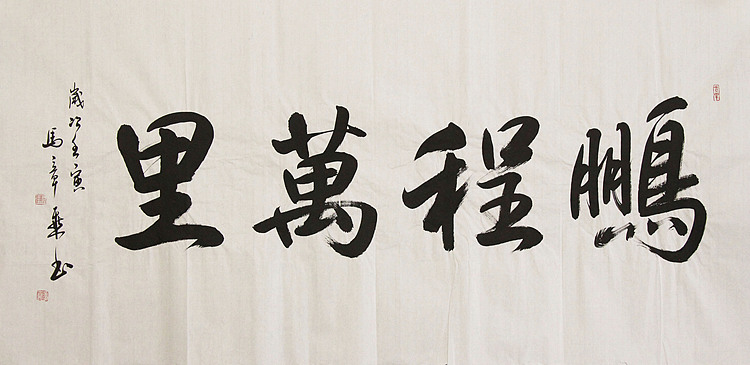 鵬程萬里
歲次壬寅
馬章乘書